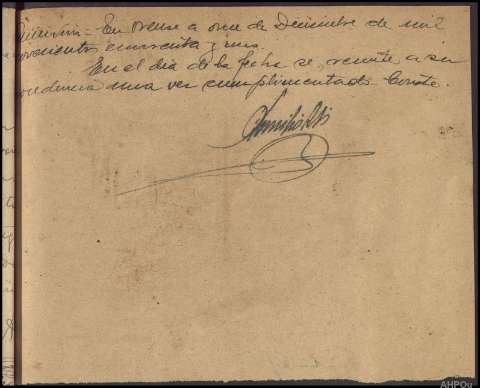 En Orense a once de Diciembre de mil
novecientos cuarenta y uno.
En el dia de la fecha se remite a su
procedencia una vez cumplimentado. Conste.
AHPOu